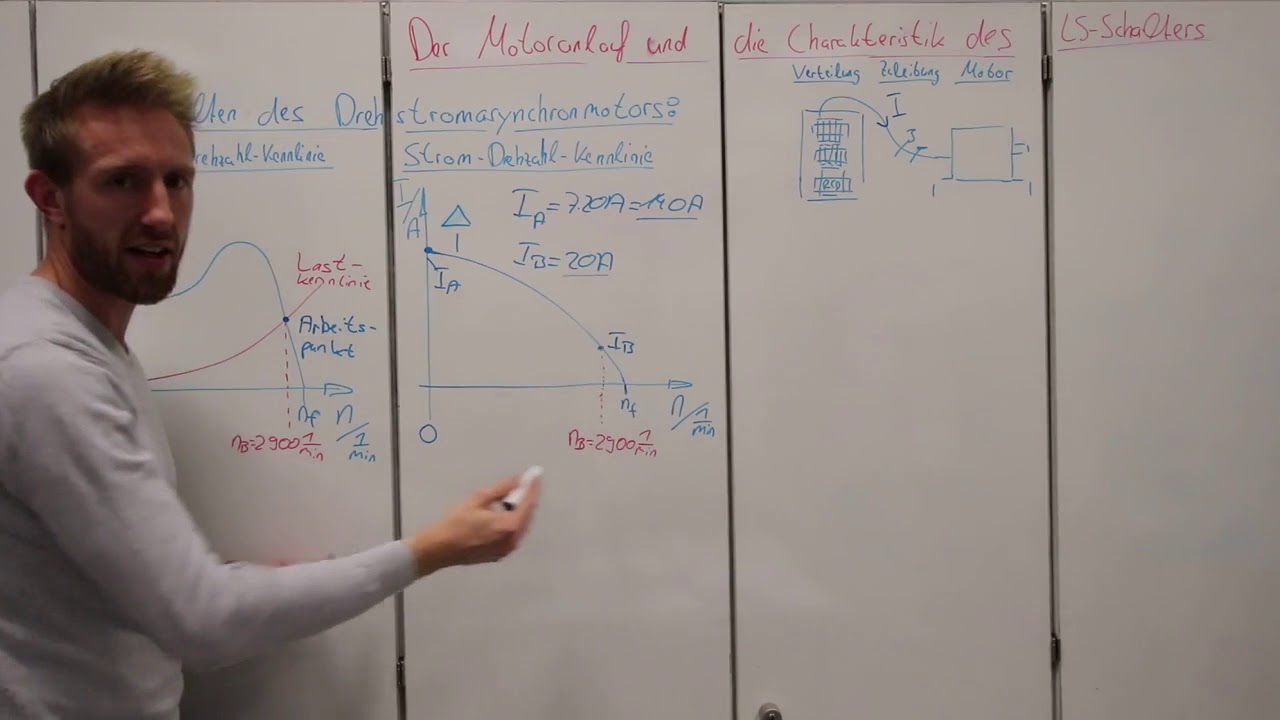 Der Motoranlauf und die Charakteristik des LS-Schalters
Verteilung Zuleitung Motor
lten des Drehstromasynchronmotors:
rehzahl-Kennlinie
Strom-Drehzahl-Kennlinie
I/A
△
I_A = 7·20A = 140A
I_B = 20A
I_A
I_B
n_f
n / 1/min
n_B=2900 1/min
0
Last-
kennlinie
Arbeits-
punkt
n_f
n / 1/min
n_B=2900 1/min
I
3
RCD